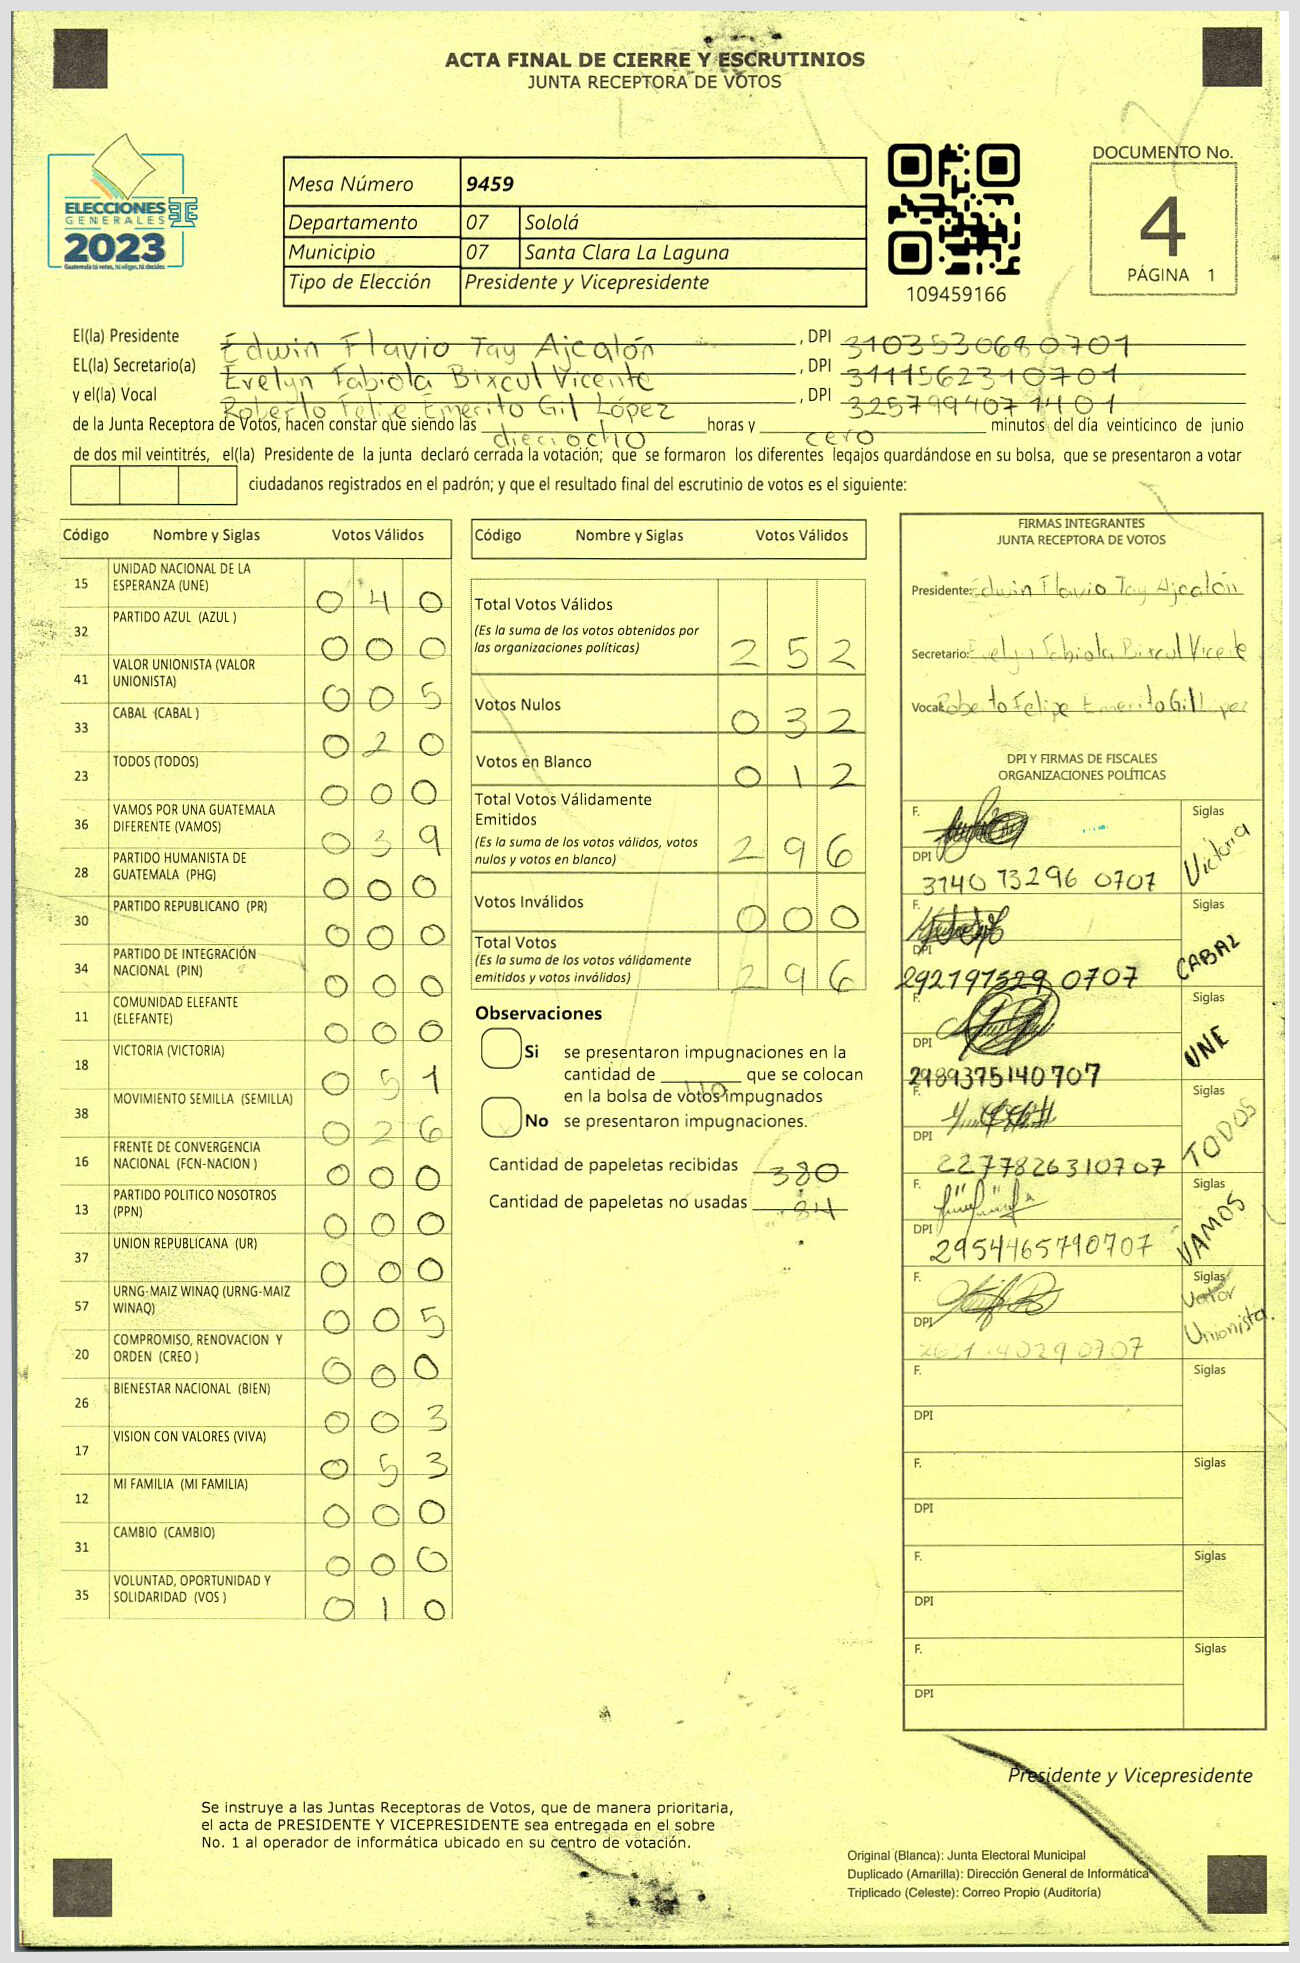 ACTA FINAL DE CIERRE Y ESCRUTINIOS
JUNTA RECEPTORA DE VOTOS
ELECCIONES
GENERALES
2023
Guatemala tú votas, tú eliges, tú decides
Mesa Número 9459
Departamento 07 Sololá
Municipio 07 Santa Clara La Laguna
Tipo de Elección Presidente y Vicepresidente
109459166
DOCUMENTO No.
4
PÁGINA 1
El(la) Presidente Edwin Flavio Tay Ajcalón , DPI 3103530680701
EL(la) Secretario(a) Evelyn Fabiola Bixcul Vicente , DPI 3111562310701
y el(la) Vocal Roberto Felipe Emerito Gil López , DPI 3257994071401
de la Junta Receptora de Votos, hacen constar que siendo las dieciocho horas y cero minutos del día veinticinco de junio
de dos mil veintitrés, el(la) Presidente de la junta declaró cerrada la votación; que se formaron los diferentes legajos guardándose en su bolsa, que se presentaron a votar
ciudadanos registrados en el padrón; y que el resultado final del escrutinio de votos es el siguiente:
Código Nombre y Siglas Votos Válidos
15 UNIDAD NACIONAL DE LA
ESPERANZA (UNE) 0 4 0
32 PARTIDO AZUL (AZUL ) 0 0 0
41 VALOR UNIONISTA (VALOR
UNIONISTA) 0 0 5
33 CABAL (CABAL ) 0 2 0
23 TODOS (TODOS) 0 0 0
36 VAMOS POR UNA GUATEMALA
DIFERENTE (VAMOS) 0 3 9
28 PARTIDO HUMANISTA DE
GUATEMALA (PHG) 0 0 0
30 PARTIDO REPUBLICANO (PR) 0 0 0
34 PARTIDO DE INTEGRACIÓN
NACIONAL (PIN) 0 0 0
11 COMUNIDAD ELEFANTE
(ELEFANTE) 0 0 0
18 VICTORIA (VICTORIA) 0 5 1
38 MOVIMIENTO SEMILLA (SEMILLA) 0 2 6
16 FRENTE DE CONVERGENCIA
NACIONAL (FCN-NACION ) 0 0 0
13 PARTIDO POLITICO NOSOTROS
(PPN) 0 0 0
37 UNION REPUBLICANA (UR) 0 0 0
57 URNG-MAIZ WINAQ (URNG-MAIZ
WINAQ) 0 0 5
20 COMPROMISO, RENOVACION Y
ORDEN (CREO ) 0 0 0
26 BIENESTAR NACIONAL (BIEN) 0 0 3
17 VISION CON VALORES (VIVA) 0 5 3
12 MI FAMILIA (MI FAMILIA) 0 0 0
31 CAMBIO (CAMBIO) 0 0 0
35 VOLUNTAD, OPORTUNIDAD Y
SOLIDARIDAD (VOS ) 0 1 0
Código Nombre y Siglas Votos Válidos
Total Votos Válidos
(Es la suma de los votos obtenidos por
las organizaciones políticas) 2 5 2
Votos Nulos 0 3 2
Votos en Blanco 0 1 2
Total Votos Válidamente
Emitidos
(Es la suma de los votos válidos, votos
nulos y votos en blanco) 2 9 6
Votos Inválidos 0 0 0
Total Votos
(Es la suma de los votos válidamente
emitidos y votos inválidos) 2 9 6
Observaciones
Si se presentaron impugnaciones en la
cantidad de que se colocan
en la bolsa de votos impugnados
No se presentaron impugnaciones.
Cantidad de papeletas recibidas 380
Cantidad de papeletas no usadas 84
FIRMAS INTEGRANTES
JUNTA RECEPTORA DE VOTOS
Presidente: Edwin Flavio Tay Ajcalón
Secretario: Evelyn Fabiola Bixcul Vicente
Vocal: Roberto Felipe Emerito Gil Lopez
DPI Y FIRMAS DE FISCALES
ORGANIZACIONES POLÍTICAS
F. Siglas
DPI 3140 73296 0707 Victoria
F. Siglas
DPI 292197529 0707 CABAL
F. Siglas
DPI 2989375140707 UNE
F. Siglas
DPI 2277826310707 TODOS
F. Siglas
DPI 2954465790707 VAMOS
F. Siglas
DPI Valor
Unionista.
F. Siglas
DPI
F. Siglas
DPI
F. Siglas
DPI
F. Siglas
DPI
Presidente y Vicepresidente
Se instruye a las Juntas Receptoras de Votos, que de manera prioritaria,
el acta de PRESIDENTE Y VICEPRESIDENTE sea entregada en el sobre
No. 1 al operador de informática ubicado en su centro de votación.
Original (Blanca): Junta Electoral Municipal
Duplicado (Amarilla): Dirección General de Informática
Triplicado (Celeste): Correo Propio (Auditoría)